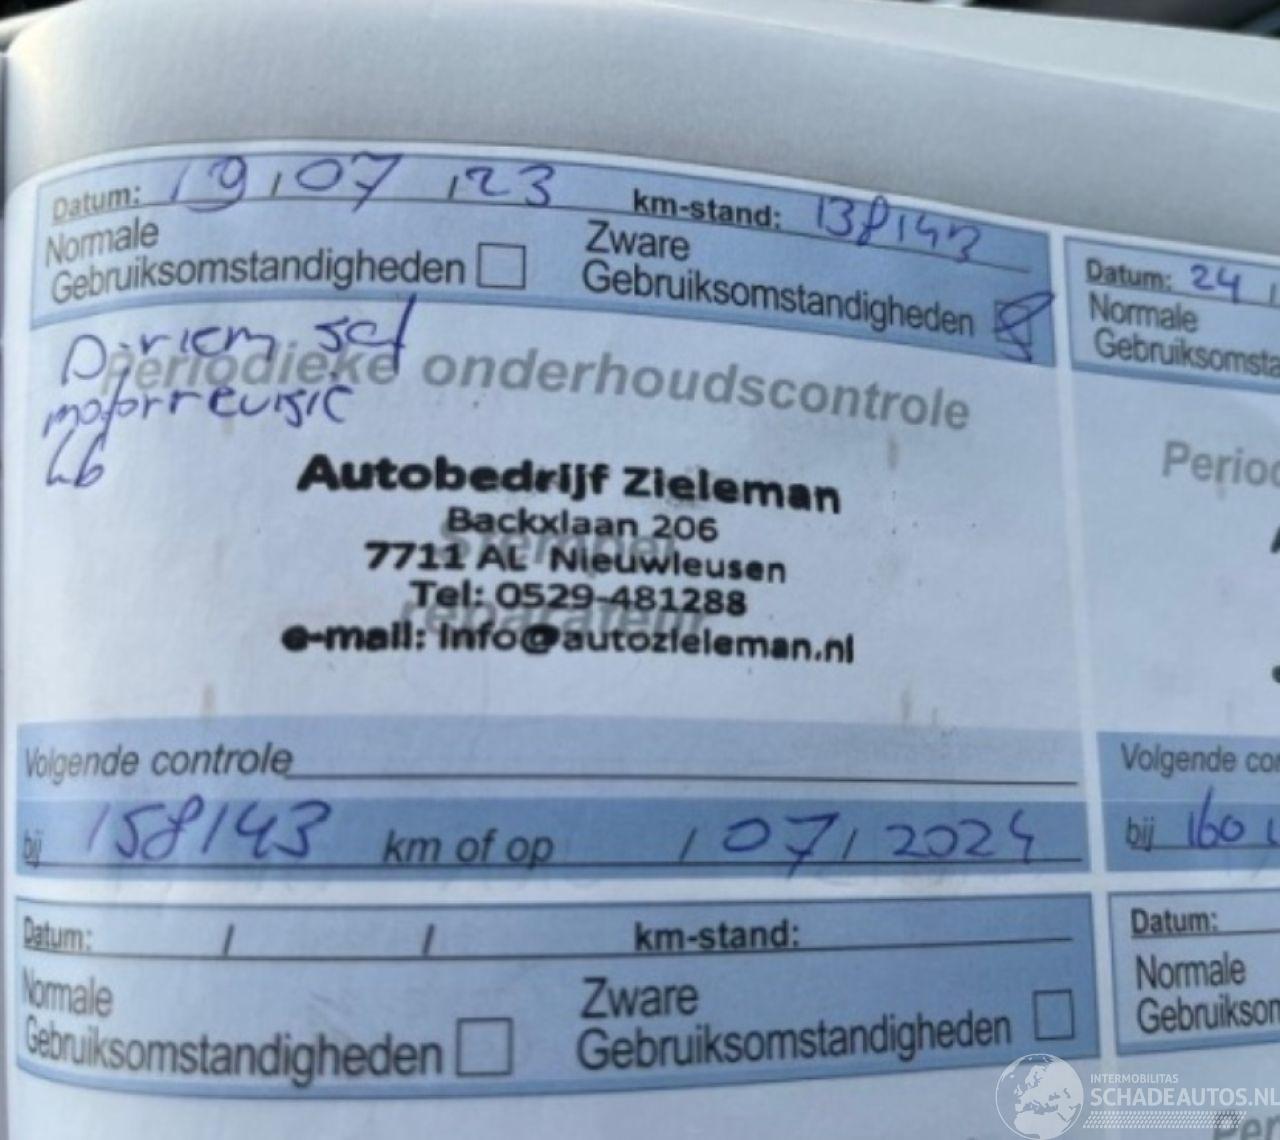 Datum: 19 / 07 / 23 km-stand: 138143
Normale Gebruiksomstandigheden
Zware Gebruiksomstandigheden
D-riem set
motorrevisie
Periodieke onderhoudscontrole
Autobedrijf Zieleman
Backxlaan 206
7711 AL Nieuwleusen
Tel: 0529-481288
e-mail: info@autozieleman.nl
Stempel
reparateur
Volgende controle
bij 158143 km of op / 07 / 2024
Datum: / / km-stand:
Normale Gebruiksomstandigheden
Zware Gebruiksomstandigheden
Datum: 24 /
Normale
Gebruiksomsta
Period
Volgende co
bij 160
Datum:
Normale
Gebruiksom
INTERMOBILITAS
SCHADEAUTOS.NL